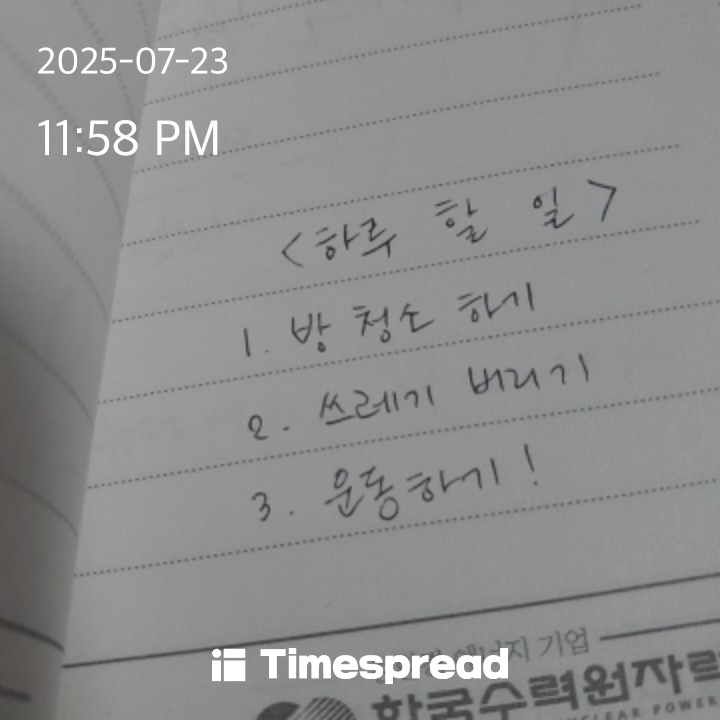 2025-07-23
11:58 PM
<하루 할 일>
1. 방 청소 하기
2. 쓰레기 버리기
3. 운동하기!
기업
Timespread
한국수력원자력
POWER